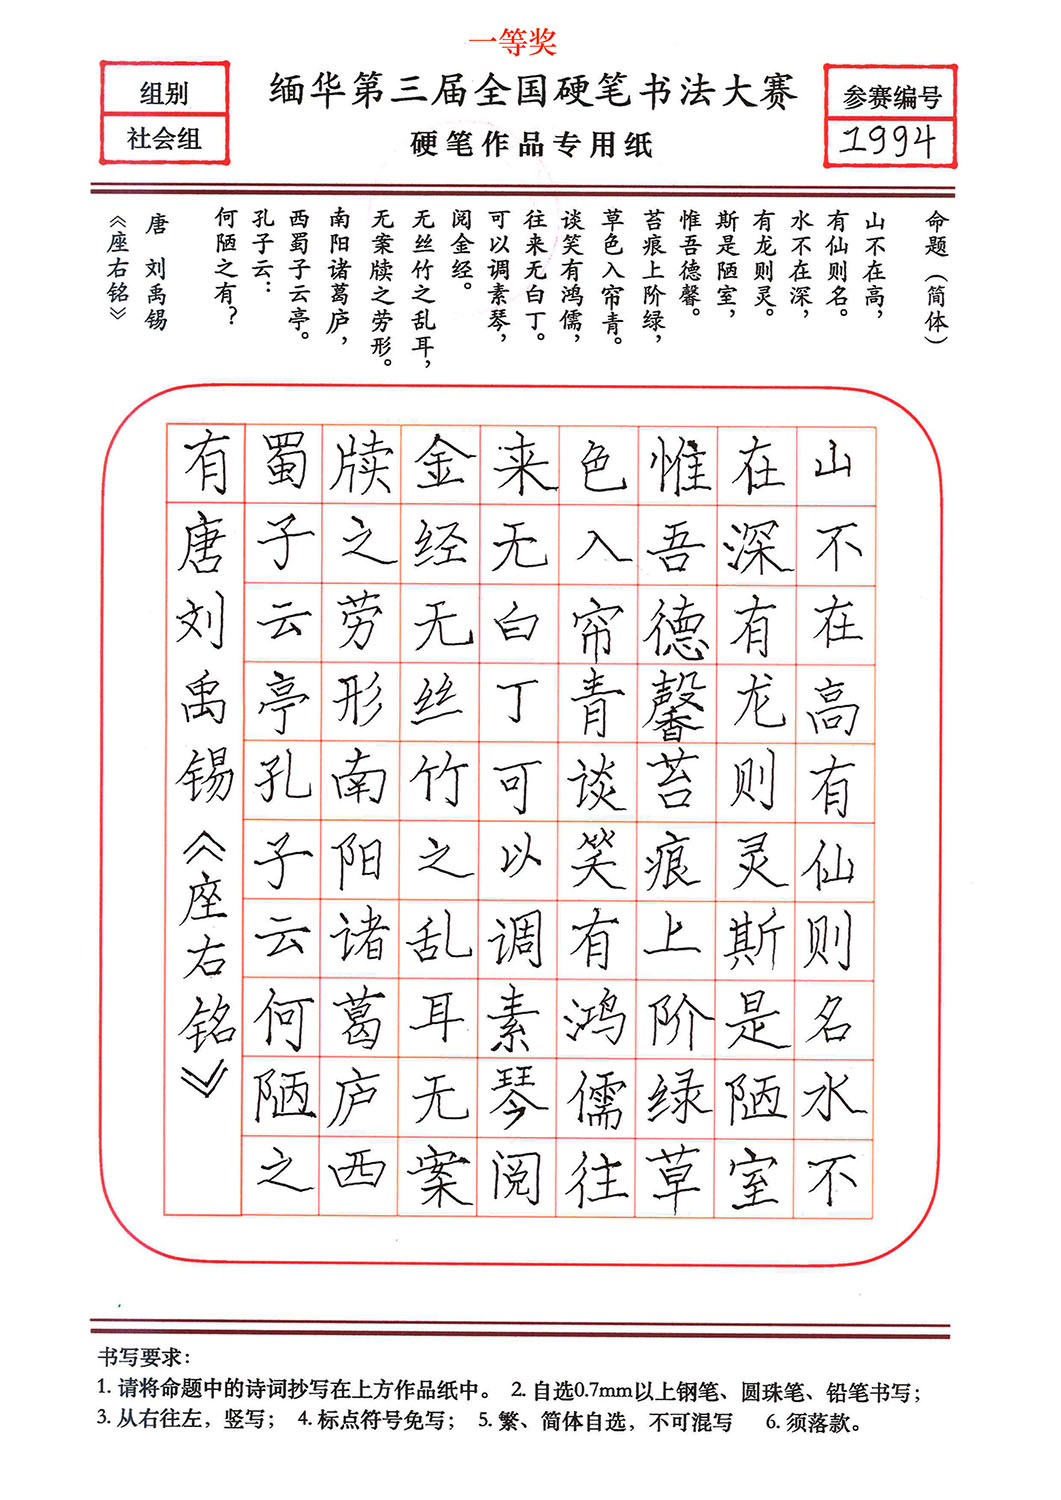 一等奖
组别
社会组
缅华第三届全国硬笔书法大赛
硬笔作品专用纸
参赛编号
1994
命题（简体）
山不在高，
有仙则名。
水不在深，
有龙则灵。
斯是陋室，
惟吾德馨。
苔痕上阶绿，
草色入帘青。
谈笑有鸿儒，
往来无白丁。
可以调素琴，
阅金经。
无丝竹之乱耳，
无案牍之劳形。
南阳诸葛庐，
西蜀子云亭。
孔子云：
何陋之有？
唐 刘禹锡
《座右铭》
山不在高有仙则名水不
在深有龙则灵斯是陋室
惟吾德馨苔痕上阶绿草
色入帘青谈笑有鸿儒往
来无白丁可以调素琴阅
金经无丝竹之乱耳无案
牍之劳形南阳诸葛庐西
蜀子云亭孔子云何陋之
有唐刘禹锡《座右铭》
书写要求：
1. 请将命题中的诗词抄写在上方作品纸中。 2. 自选0.7mm以上钢笔、圆珠笔、铅笔书写；
3. 从右往左，竖写； 4. 标点符号免写； 5. 繁、简体自选，不可混写 6. 须落款。